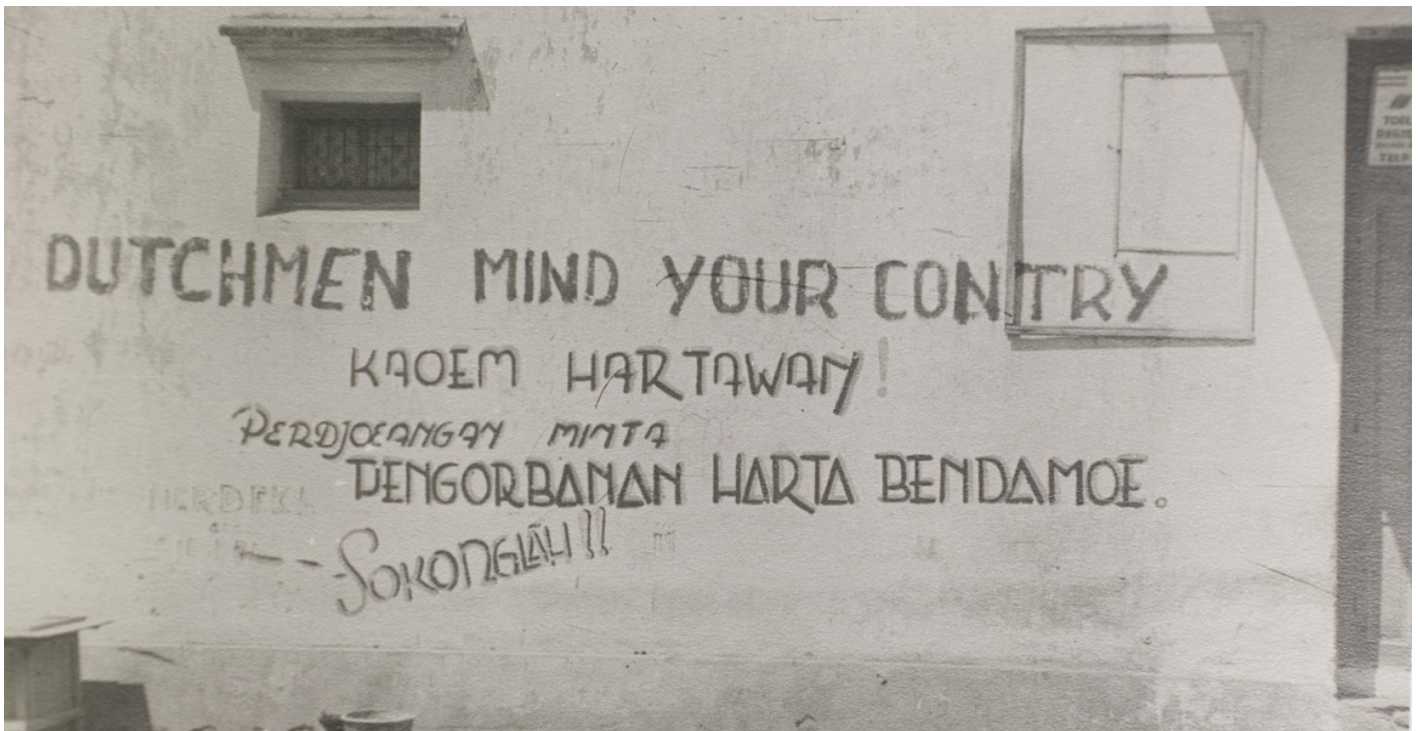 DUTCHMEN MIND YOUR CONTRY
KAOEM HARTAWAN!
PERDJOEANGAN MINTA
PENGORBANAN HARTA BENDAMOE.
MERDEKA
SOKONGLAH!!
TELP